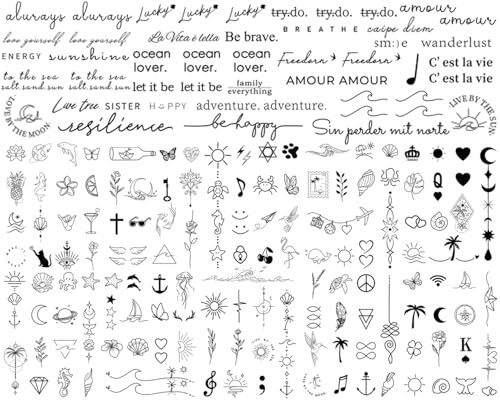 always always Lucky Lucky Lucky try.do. try.do. try.do. amour amour
love yourself love yourself La Vita è bella Be brave. BREATHE carpe diem
sm:)e wanderlust
ENERGY sunshine ocean lover. ocean lover. ocean lover. Freedom Freedom C' est la vie
to the sea to the sea
salt sand sun salt sand sun let it be let it be family everything AMOUR AMOUR C' est la vie
LIVE BY THE MOON Live tree SISTER HAPPY adventure. adventure. LIVE BY THE SUN
resilience be happy Sin perder mit norte
Q
K